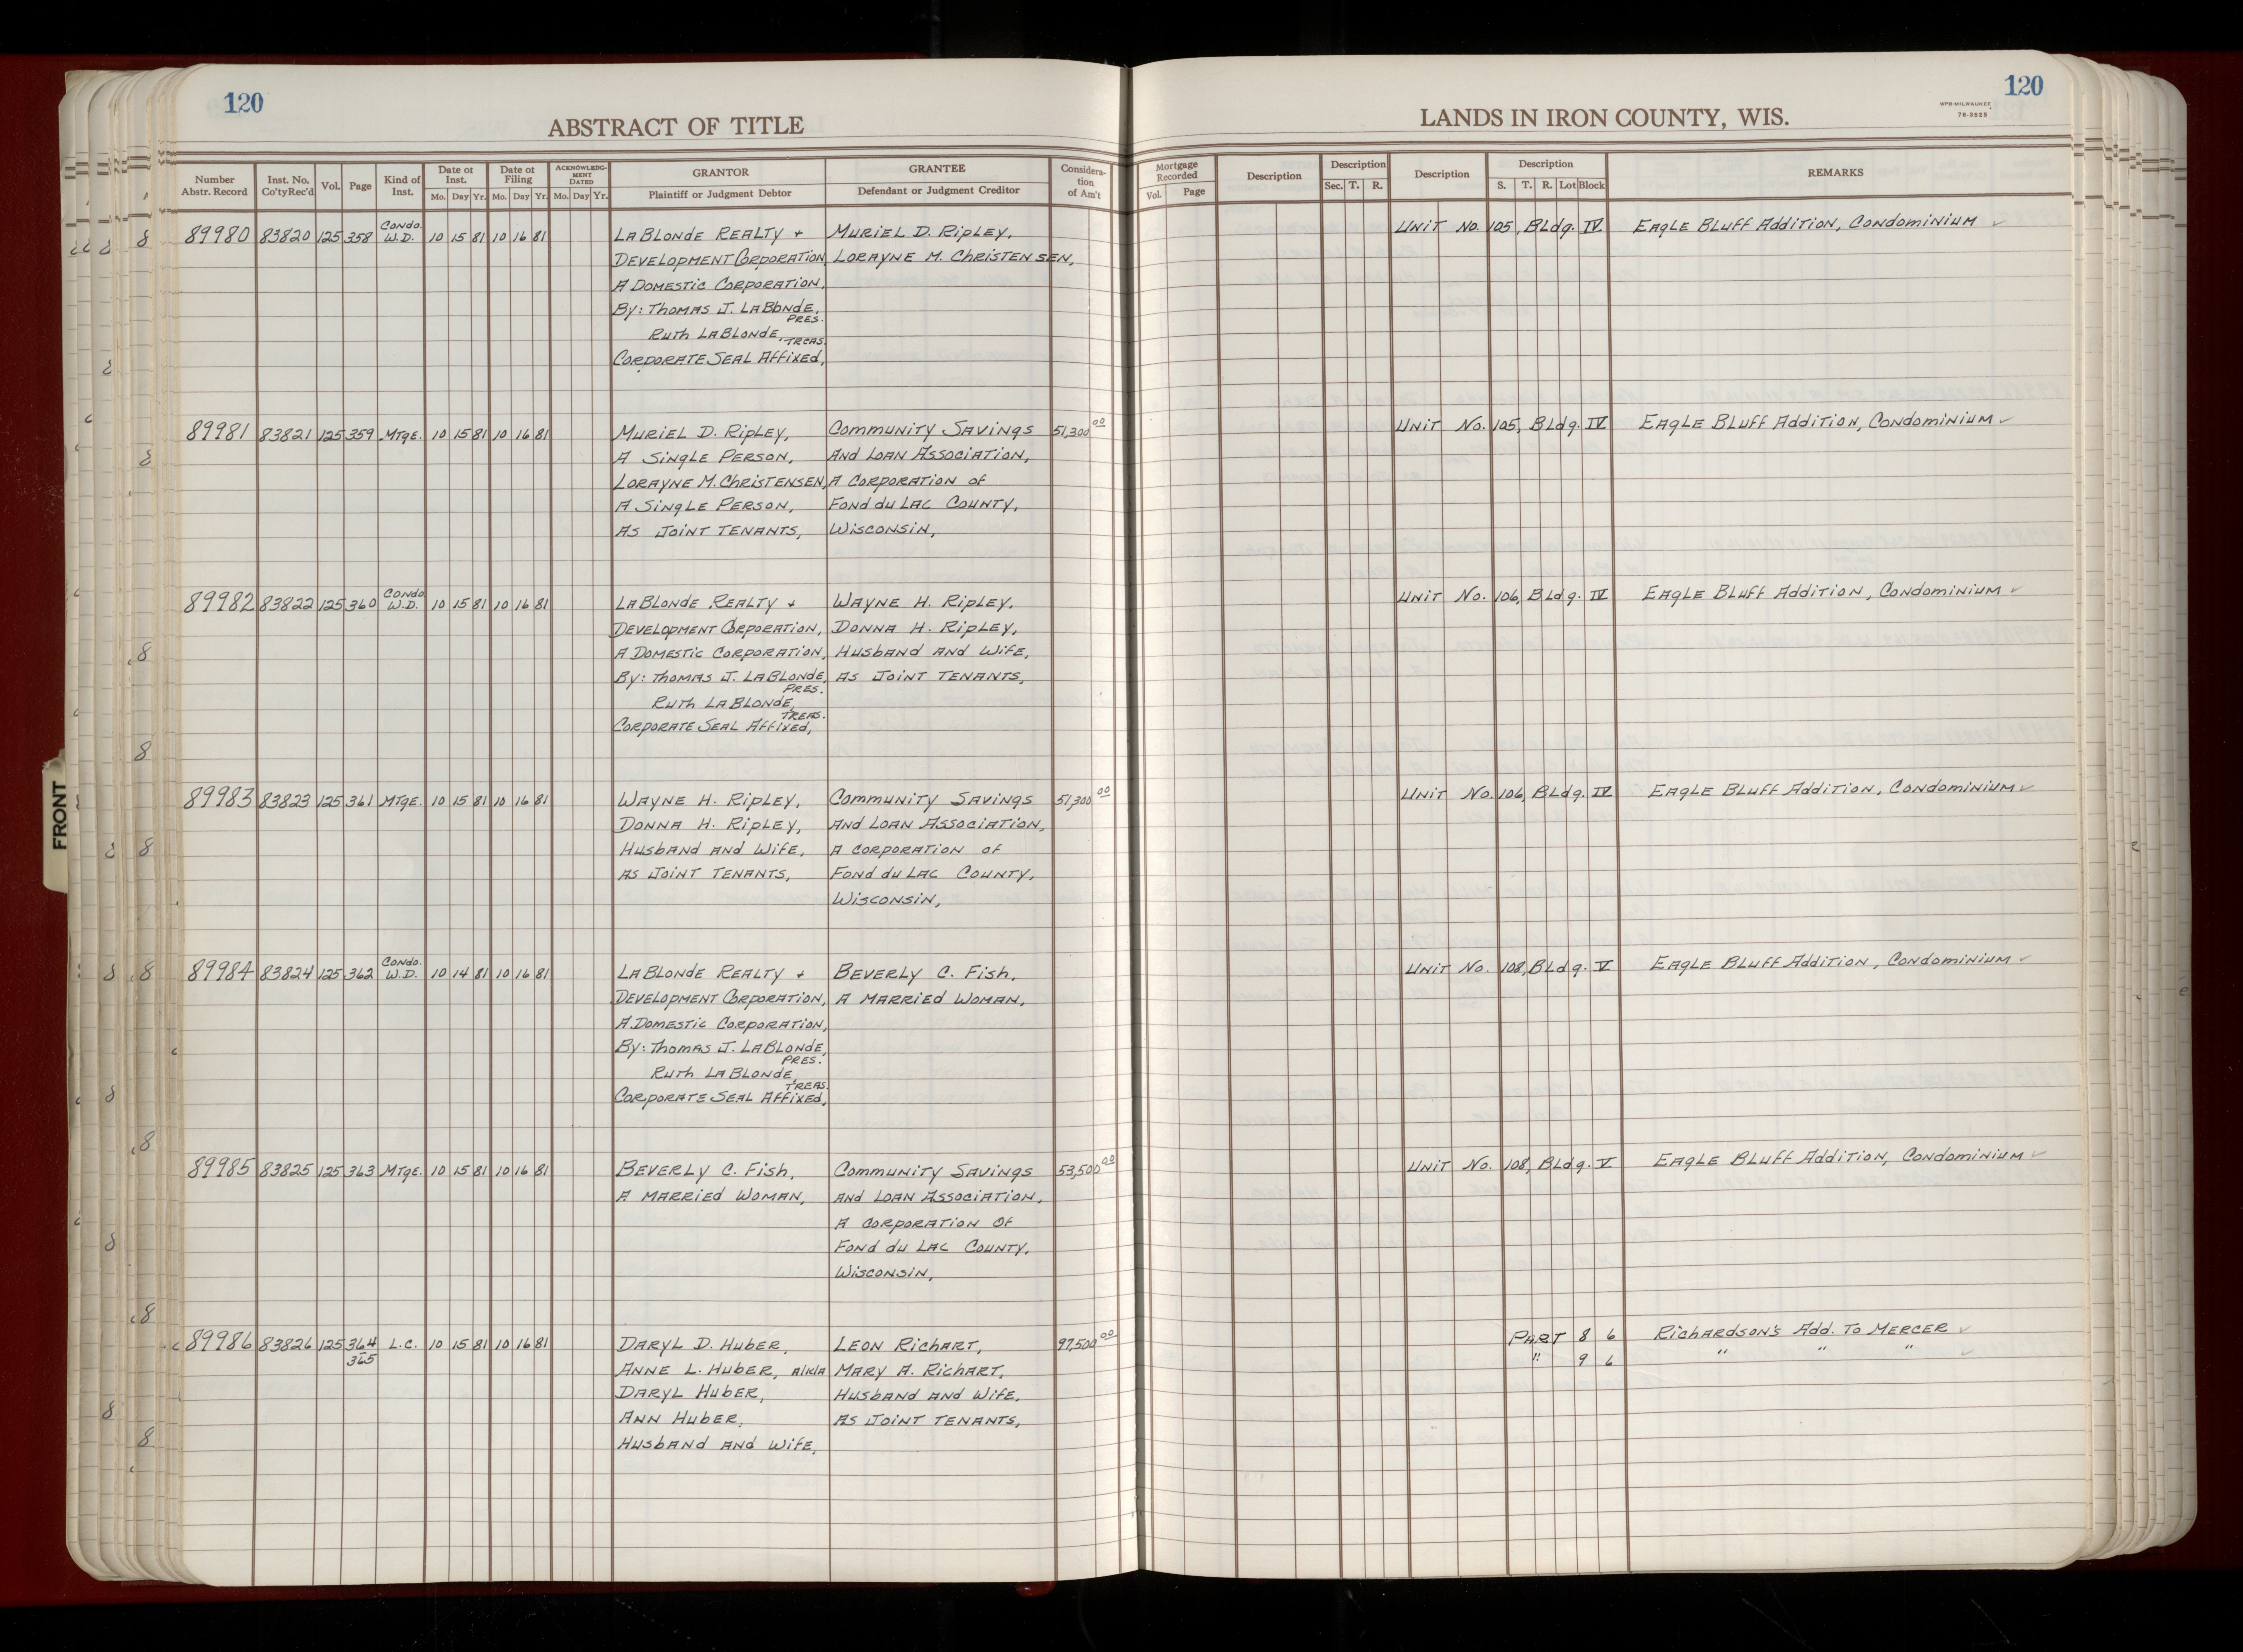 120
ABSTRACT OF TITLE
Number Abstr. Record | Inst. No. Co'ty Rec'd | Vol. | Page | Kind of Inst. | Date of Inst. Mo. Day Yr. | Date of Filing Mo. Day Yr. | ACKNOWLEDGMENT DATED Mo. Day Yr. | GRANTOR Plaintiff or Judgment Debtor | GRANTEE Defendant or Judgment Creditor | Consideration of Am't
89980 83820 125 358 Condo. W.D. 10 15 81 10 16 81 LaBlonde Realty + Muriel D. Ripley,
Development Corporation Lorayne M. Christensen,
A Domestic Corporation,
By: Thomas J. LaBlonde, Pres.
Ruth LaBlonde, Treas.
Corporate Seal Affixed,
89981 83821 125 359 Mtge. 10 15 81 10 16 81 Muriel D. Ripley, Community Savings 51,300 00
A Single Person, and Loan Association,
Lorayne M. Christensen, A Corporation of
A Single Person, Fond du Lac County,
As Joint Tenants, Wisconsin,
89982 83822 125 360 Condo W.D. 10 15 81 10 16 81 LaBlonde Realty + Wayne H. Ripley,
Development Corporation, Donna H. Ripley,
A Domestic Corporation, Husband and Wife,
By: Thomas J. LaBlonde, Pres. As Joint Tenants,
Ruth LaBlonde, Treas.
Corporate Seal Affixed,
89983 83823 125 361 Mtge. 10 15 81 10 16 81 Wayne H. Ripley, Community Savings 51,300 00
Donna H. Ripley, and Loan Association,
Husband and Wife, A Corporation of
As Joint Tenants, Fond du Lac County,
Wisconsin,
89984 83824 125 362 Condo. W.D. 10 14 81 10 16 81 LaBlonde Realty + Beverly C. Fish,
Development Corporation, A Married Woman,
A Domestic Corporation,
By: Thomas J. LaBlonde, Pres.
Ruth LaBlonde, Treas.
Corporate Seal Affixed,
89985 83825 125 363 Mtge. 10 15 81 10 16 81 Beverly C. Fish, Community Savings 53,500 00
A Married Woman, and Loan Association,
A Corporation of
Fond du Lac County,
Wisconsin,
89986 83826 125 364 365 L.C. 10 15 81 10 16 81 Daryl D. Huber, Leon Richart, 97,500 00
Anne L. Huber, a/k/a Mary A. Richart,
Daryl Huber, Husband and Wife,
Ann Huber, As Joint Tenants,
Husband and Wife,
FRONT
120
LANDS IN IRON COUNTY, WIS.
WPB-MILWAUKEE
76-3525
Mortgage Recorded Vol. Page | Description | Description Sec. T. R. | Description | Description S. T. R. Lot Block | REMARKS
Unit No. 105, Bldg. IV Eagle Bluff Addition, Condominium ✓
Unit No. 105, Bldg. IV Eagle Bluff Addition, Condominium ✓
Unit No. 106, Bldg. IV Eagle Bluff Addition, Condominium ✓
Unit No. 106, Bldg. IV Eagle Bluff Addition, Condominium ✓
Unit No. 108, Bldg. V Eagle Bluff Addition, Condominium ✓
Unit No. 108, Bldg. V Eagle Bluff Addition, Condominium ✓
Part 8 6 Richardson's Add. To Mercer ✓
" 9 6 " " " ✓